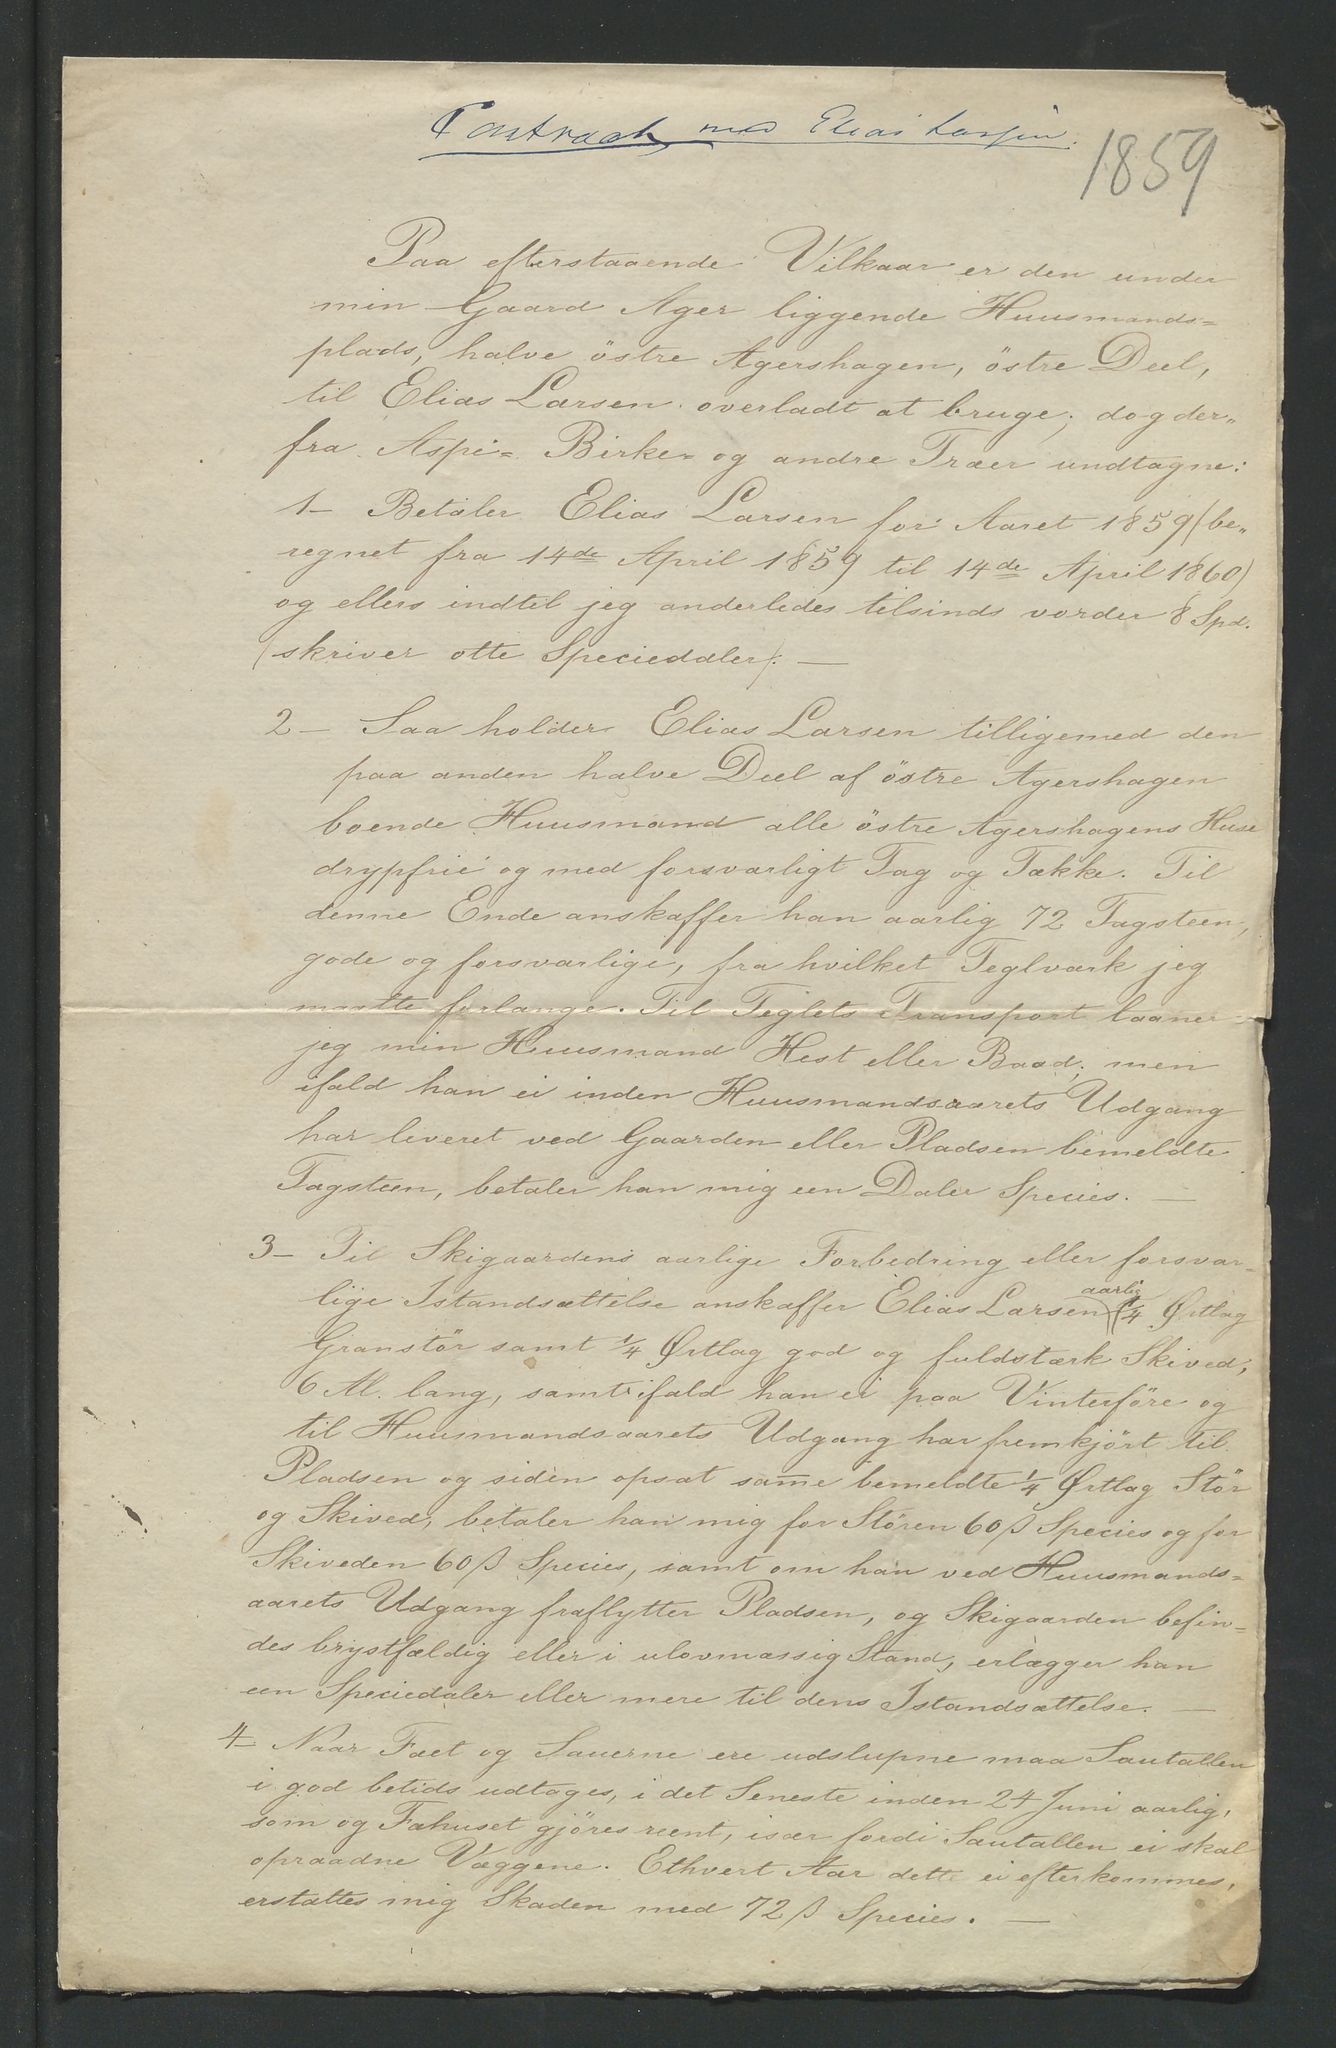 Contract med Elias Larsen.
1859
Paa efterstaaende Vilkaar er den under
min Gaard Ager liggende Huusmands=
plads, halve östre Agershagen, östre Deel,
til Elias Larsen overladt at bruge; dog der„
fra Aspe= Birke= og andre Træer undtagne:
1– Betaler Elias Larsen for Aaret 1859 (be„
regnet fra 14de April 1859 til 14de April 1860)
og ellers indtil jeg anderledes tilsinds vorder 8 Spd.
(skriver otte Speciedaler). —
2– Saa holder Elias Larsen tilligemed den
paa anden halve Deel af östre Agershagen
boende Huusmand alle östre Agershagens Huse
drypfrie og med forsvarligt Tag og Tække. Til
denne Ende anskaffer han aarlig 72 Tagsteen,
gode og forsvarlige, fra hvilket Teglværk jeg
maatte forlange. Til Teglets Transport laaner
jeg min Huusmand Hest eller Baad; men
ifald han ei inden Huusmandsaarets Udgang
har leveret ved Gaarden eller Pladsen bemeldte
Tagsteen, betaler han mig een Daler Species. —
3– Til Skigaardens aarlige Forbedring eller forsvar–
lige Istandsættelse anskaffer Elias Larsen aarlig 1/4 Ørtlag
Granstör samt 1/4 Ørtlag god og fuldstærk Skived,
6 Al. lang, samt ifald han ei paa Vinterföre og
til Huusmandsaarets Udgang har fremkjört til
Pladsen og siden opsat samme bemeldte 1/4 Ørtlag Stör
og Skived, betaler han mig for Stören 60 ß Species og for
Skiveden 60 ß Species, samt om han ved Huusmands=
aarets Udgang fraflytter Pladsen, og Skigaarden befin–
des brystfældig eller i ulovmæssig Stand, erlægger han
een Speciedaler eller mere til dens Istandsættelse. —
4– Naar Fæet og Sauerne ere udslupne maa Sautallen
i god betids udtages, i det Seneste inden 24 Juni aarlig,
som og Fæhuset gjöres reent, især fordi Sautallen ei skal
opraadne Væggene. Ethvert Aar dette ei efterkommes,
erstattes mig Skaden med 72 ß Species. —